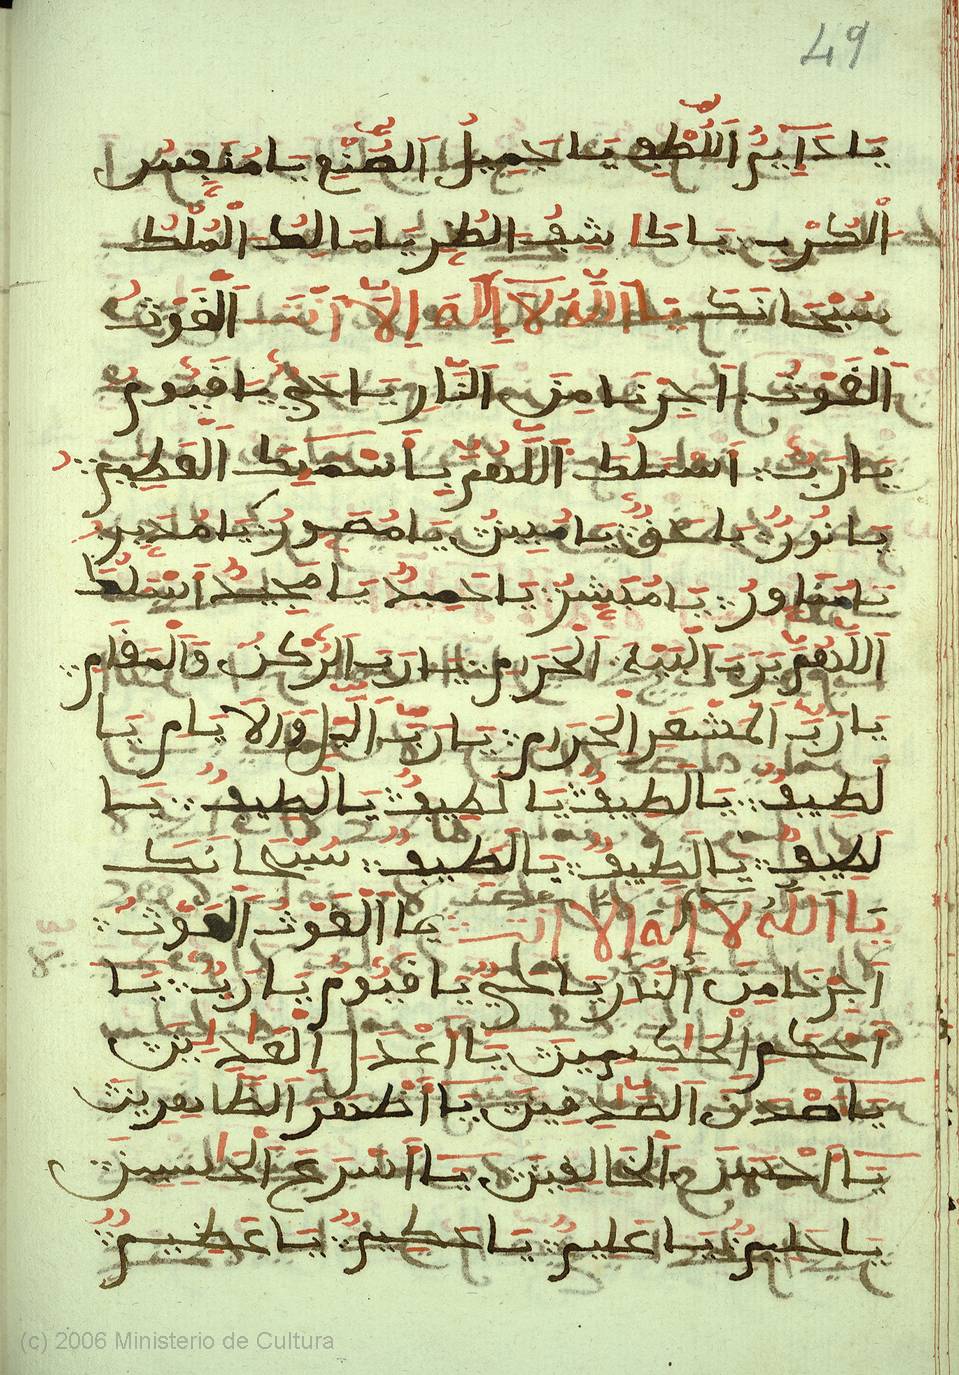 49
يَا دَآيِمَ اللُّطْفِ يَا جَمِيلَ الصُّنْعِ يَا مُنَفِّسَ
الْكَرْبِ يَا كَاشِفَ الضُّرِّ يَا مَالِكَ الْمُلْكِ
سُبْحَانَكَ يَا اَللَّهُ لَآ إِلَهَ إِلَّا أَنْتَ الْغَوْثُ
الْغَوْثُ اَجِرْنَا مِنَ النَّارِ يَا حَيُّ يَا قَيُّومُ
يَا رَبُّ أَسْئَلُكَ اللَّهُمَّ بِأَسْمِكَ الْعَظِيمِ
يَا نُورُ يَا حَقُّ يَا مُبِينُ يَا مُصَوِّرُ يَا مُدَبِّرُ
يَا مُنَوِّرُ يَا مُبَشِّرُ يَا حَمِيدُ يَا مَجِيدُ أَسْئَلُكَ
اللَّهُمَّ بِرَبِّ الْبَيْتِ الْحَرَامِ يَا رَبَّ الرُّكْنِ وَالْمَقَامِ
يَا رَبَّ الْمَشْعَرِ الْحَرَامِ يَا رَبَّ الَّيْلِ وَالْاَيَامِ يَا
لَطِيفُ يَا لَطِيفُ يَا لَطِيفُ يَا لَطِيفُ يَا
لَطِيفُ يَا لَطِيفُ يَا لَطِيفُ سُبْحَانَكَ
يَا اَللَّهُ لَآ إِلَهَ إِلَّا أَنْتَ يَا الْغَوْثُ الْغَوْثُ
اَجِرْنَا مِنَ النَّارِ يَا حَيُّ يَا قَيُّومُ يَا رَبُّ يَا
أَحْكَمَ الْحَكِمِينَ يَا أَعْدَلَ الْعَدِلِينَ
يَا أَصْدَقَ الصَّدِقِينَ يَا أَظْهَرَ الظَّاهِرِينَ
يَا أَحْسَنَ الْخَالِقِينَ يَا أَسْرَعَ الْحَسِبِينَ
يَا حَلِيمُ يَا عَلِيمُ يَا حَكِيمُ يَا عَظِيمُ
(c) 2006 Ministerio de Cultura